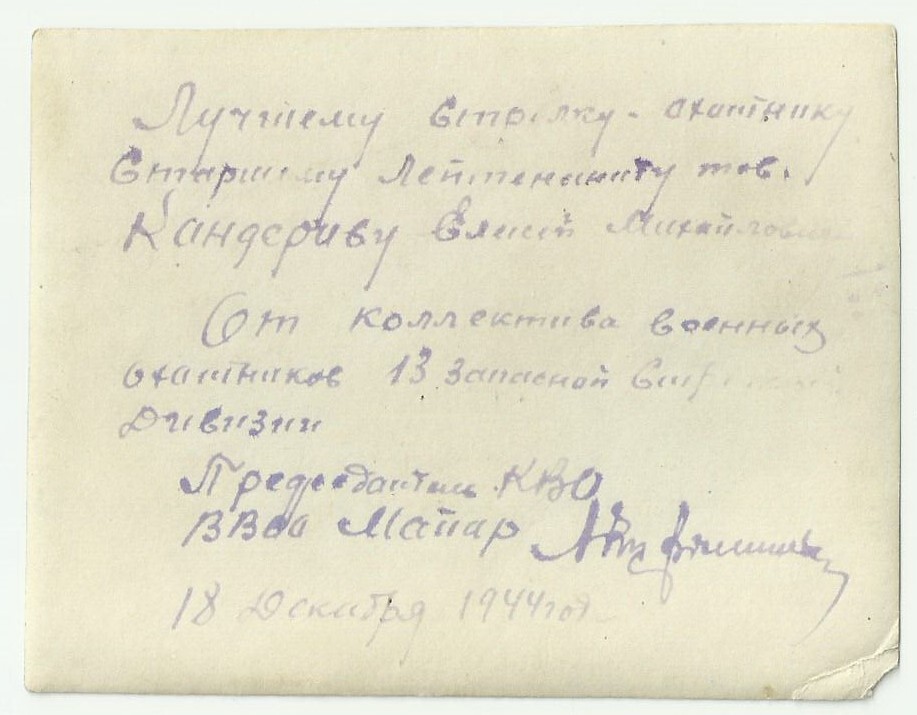 Лучшему стрелку-охотнику
Старшему Лейтенанту тов.
Кандериву Елисей Михайлович
От коллектива военных
охотников 13 Запасной
Дивизии
Председатель КВО
ВВоо Майор
18 Декабря 1944 год